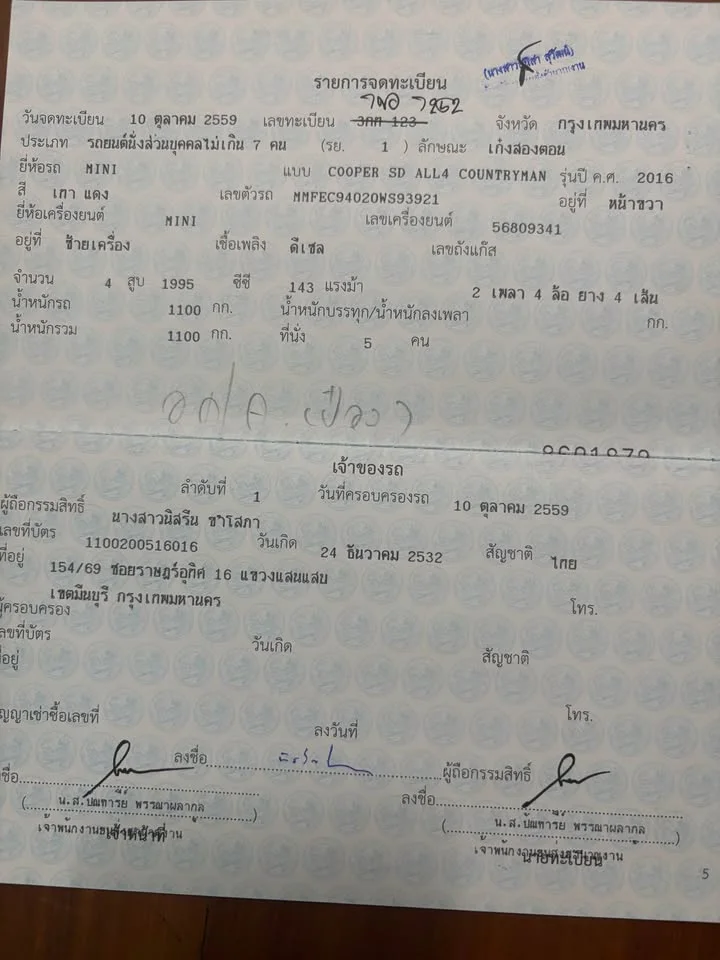 รายการจดทะเบียน
วันจดทะเบียน 10 ตุลาคม 2559 เลขทะเบียน 3กก 123 จังหวัด กรุงเทพมหานคร
ประเภท รถยนต์นั่งส่วนบุคคลไม่เกิน 7 คน (รย. 1 ) ลักษณะ เก๋งสองตอน
ยี่ห้อรถ MINI แบบ COOPER SD ALL4 COUNTRYMAN รุ่นปี ค.ศ. 2016
สี เทา แดง เลขตัวรถ MMFEC94020WS93921 อยู่ที่ หน้าขวา
ยี่ห้อเครื่องยนต์ MINI เลขเครื่องยนต์ 56809341
อยู่ที่ ซ้ายเครื่อง เชื้อเพลิง ดีเซล เลขถังแก๊ส
จำนวน 4 สูบ 1995 ซีซี 143 แรงม้า 2 เพลา 4 ล้อ ยาง 4 เส้น
น้ำหนักรถ 1100 กก. น้ำหนักบรรทุก/น้ำหนักลงเพลา กก.
น้ำหนักรวม 1100 กก. ที่นั่ง 5 คน
เจ้าของรถ
ลำดับที่ 1 วันที่ครอบครองรถ 10 ตุลาคม 2559
ผู้ถือกรรมสิทธิ์ นางสาวนิสรีน ชาโสภา
เลขที่บัตร 1100200516016 วันเกิด 24 ธันวาคม 2532 สัญชาติ ไทย
ที่อยู่ 154/69 ซอยราษฎร์อุทิศ 16 แขวงแสนแสบ
เขตมีนบุรี กรุงเทพมหานคร
ผู้ครอบครอง โทร.
เลขที่บัตร วันเกิด สัญชาติ
ที่อยู่
สัญญาเช่าซื้อเลขที่ ลงวันที่ โทร.
ลงชื่อ ผู้ถือกรรมสิทธิ์
ลงชื่อ ลงชื่อ
(น.ส.ปัณฑารีย์ พรรณาผลากูล) (น.ส.ปัณฑารีย์ พรรณาผลากูล)
เจ้าหน้าที่ นายทะเบียน
5